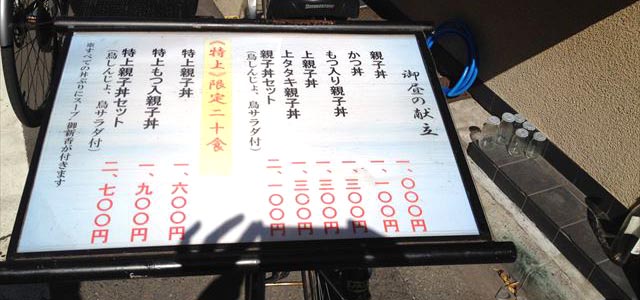 御昼の献立
親子丼 一、〇〇〇円
かつ丼 一、一〇〇円
もつ入り親子丼 一、三〇〇円
上親子丼 一、三〇〇円
上タタキ親子丼 一、三〇〇円
親子丼セット 二、一〇〇円
(鳥しんじょ、鳥サラダ付)
《特上》限定二十食
特上親子丼 一、六〇〇円
特上もつ入親子丼 一、九〇〇円
特上親子丼セット 二、七〇〇円
(鳥しんじょ、鳥サラダ付)
※すべての丼ぶりにスープ・御新香が付きます